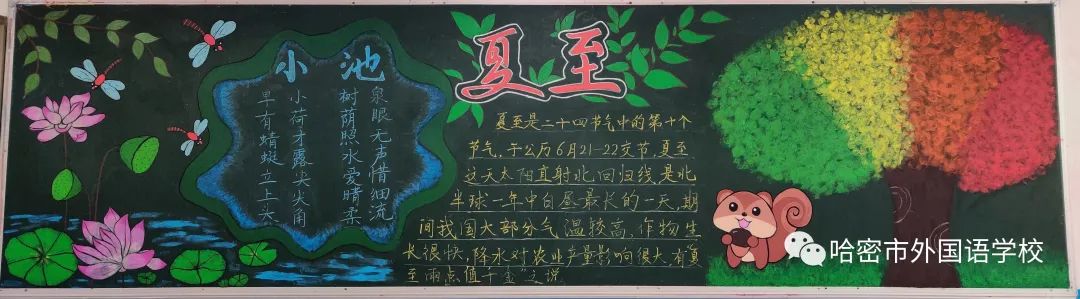 小池
泉眼无声惜细流
树荫照水爱晴柔
小荷才露尖尖角
早有蜻蜓立上头
夏至
夏至是二十四节气中的第十个
节气,于公历6月21-22交节,夏至
这天太阳直射北回归线,是北
半球一年中白昼最长的一天,期
间我国大部分气温较高,作物生
长很快,降水对农业产量影响很大,有"夏
至雨点值千金"之说
哈密市外国语学校